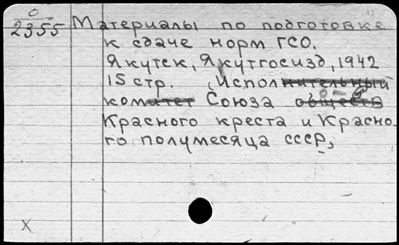 0
2355 Материалы по подготовке
к сдаче норм ГСО.
Якутск, Якутгосизд, 1942
15 стр. Исполнительный
комитет Союза обществ
Красного креста и Красно
го полумесяца СССР,
X